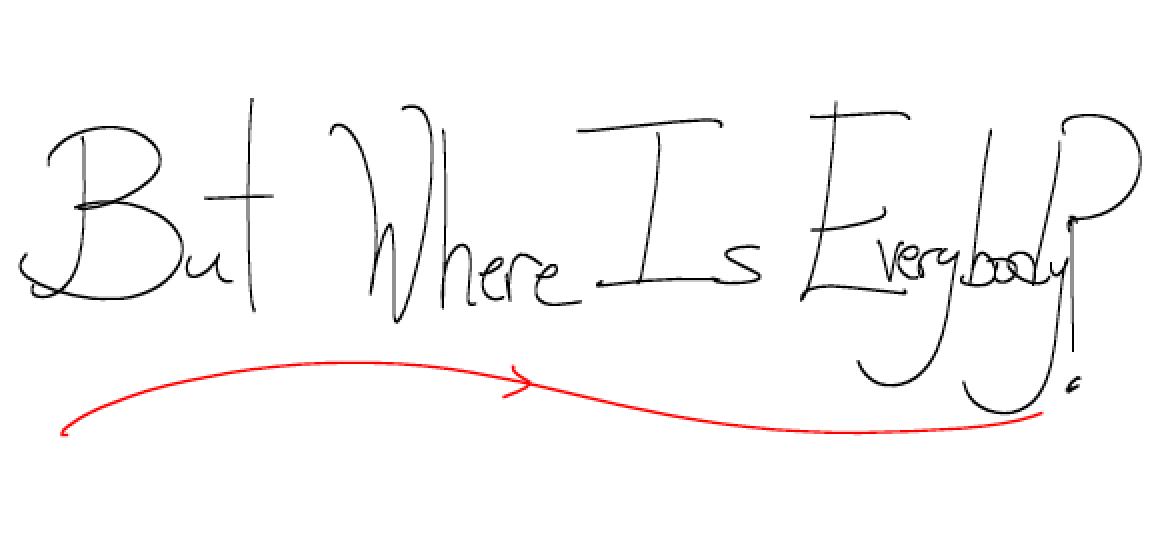 But Where Is Everybody?